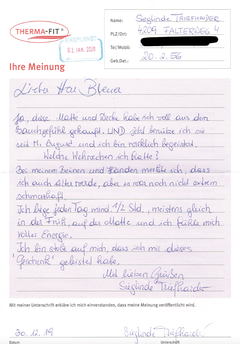 THERMA-FIT®
01. JAN. 2020
Name: Sieglinde
Adr./Ort: 4209
Tel./Mobil:
Geb.Dat.: 20.2.56
Ihre Meinung
Ja, diese Matte und Decke habe ich voll aus dem
Bauchgefühl gekauft. UND jetzt benütze ich sie
seit M. August und ich bin wirklich begeistert.
Welche Wehwechen ich hatte?
Bei meinen Beinen und Händen merkte ich, dass
ich auch älter werde, aber es war noch nicht extrem
schmerzhaft.
Ich liege jeden Tag mind. 1/2 Std., meistens gleich
in der Früh, auf der Matte und ich fühle mich
voller Energie.
Ich bin stolz auf mich, dass ich mir dieses
"Geschenk" geleistet habe.
Mit lieben Grüßen
Sieglinde
Mit meiner Unterschrift erkläre ich mich einverstanden, dass meine Meinung veröffentlicht wird.
30.12.19
Sieglinde
Datum
Unterschrift